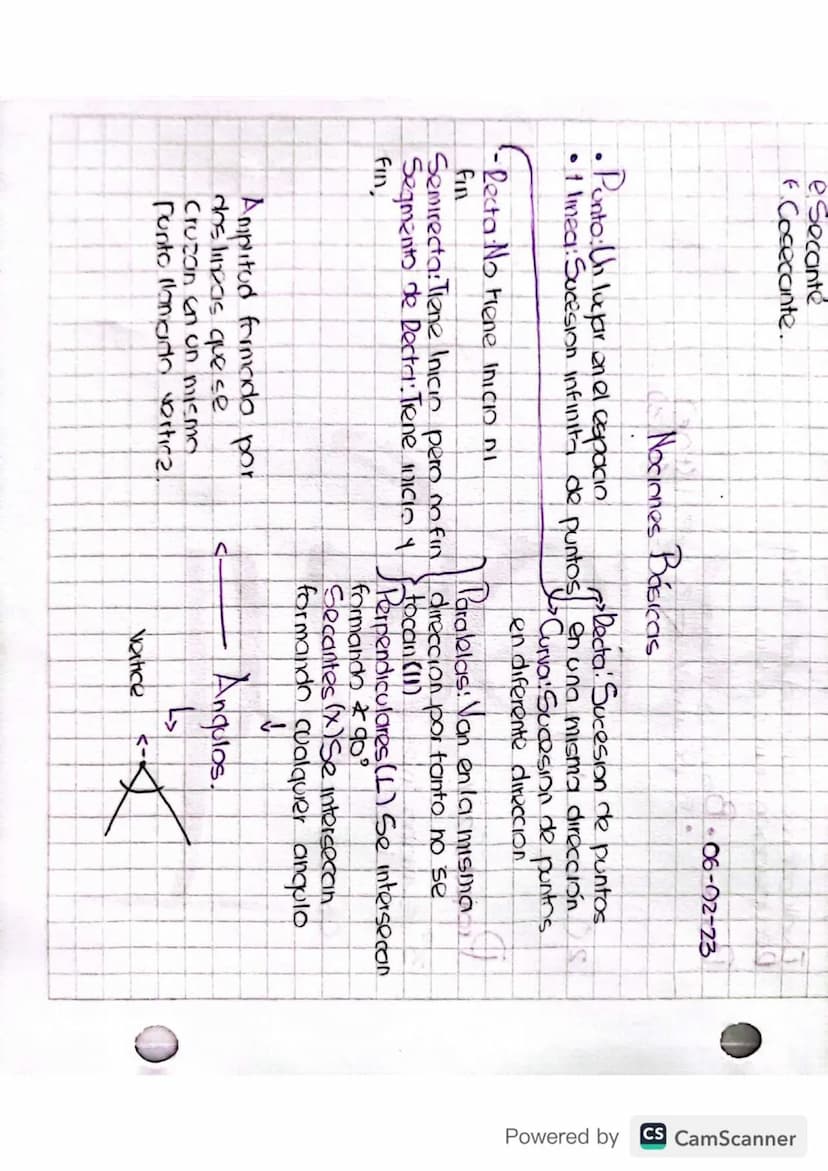 e. Secante
f. Cosecante.
06-02-23
Nociones Básicas
• Punto: Un lugar en el espacio
• 1 linea: Sucesion infinita de puntos
Recta: Sucesion de puntos
en una misma dirección
Curva: Sucesion de puntos
en diferente direccion
- Recta: No tiene inicio ni
fin
Semirecta: Tiene Inicio pero no fin
Segmento de Recta: Tiene inicio y
fin,
Paralelas: Van en la misma
direccion por tanto no se
tocan (ll)
Perpendiculares (L) Se intersecan
formando ∡ 90°
Secantes (X) Se intersecan
formando cualquier angulo
Angulos.
Amplitud formada por
dos lineas que se
cruzan en un mismo
punto llamado vertice.
Vertice
Powered by CS CamScanner